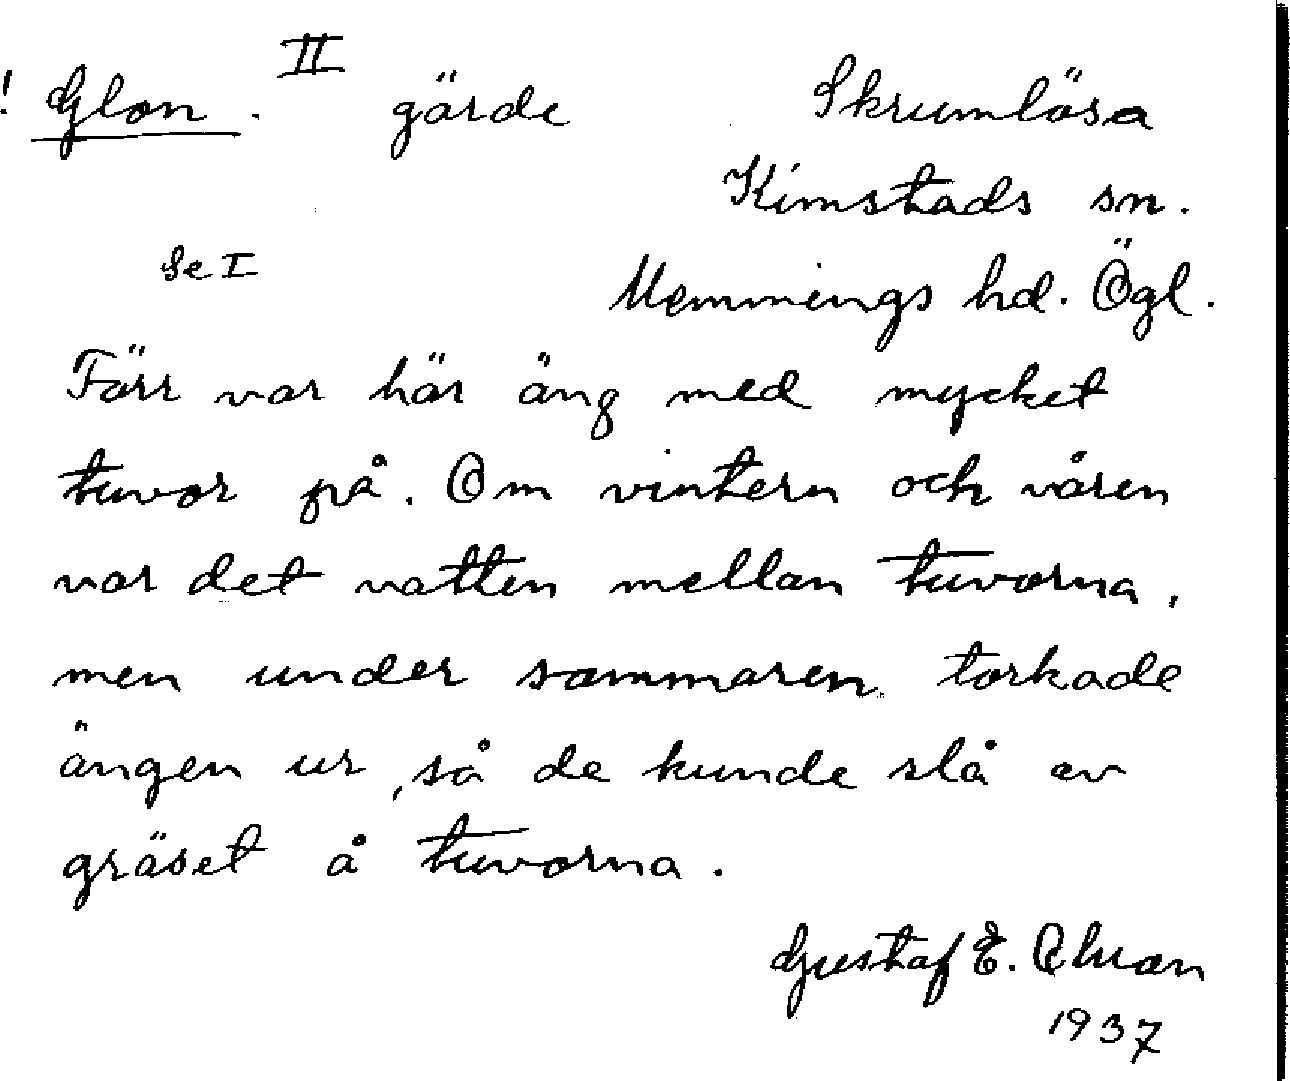 ! Glon. II gärde Skrumlösa
Kimstads sn.
Se I
Memmings hd. Ögl.
Förr var här äng med mycket
tuvor på. Om vintern och våren
var det vatten mellan tuvorna,
men under sommaren torkade
ängen ur, så de kunde slå av
gräset å tuvorna.
Gustaf E.
1937